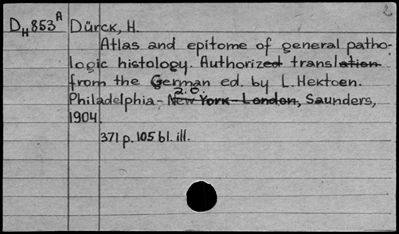 2
DH853A Dürck, H.
Atlas and epitome of general patho-
logic histology. Authorized translation
from the German ed. by L. Hektoen.
Philadelphia - New York - London, Saunders,
1904.
371 p. 105 bl. ill.